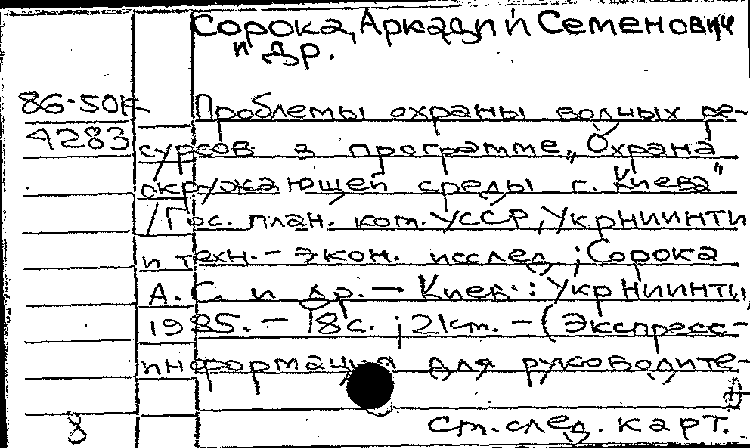 Сорока, Аркадий Семенович
и др.
86-50К
4283
Проблемы охраны водных ре-
сурсов в программе „Охрана
окружающей среды г. Киева"
/Гос. план. ком. УССР, УкрНИИНТИ
и техн.- экон. исслед.; Сорока
А. С. и др. — Киев: УкрНИИНТИ,
1985. — 18с. ; 21см. — (Экспресс-
информация для руководите-
8
ст. след. карт.